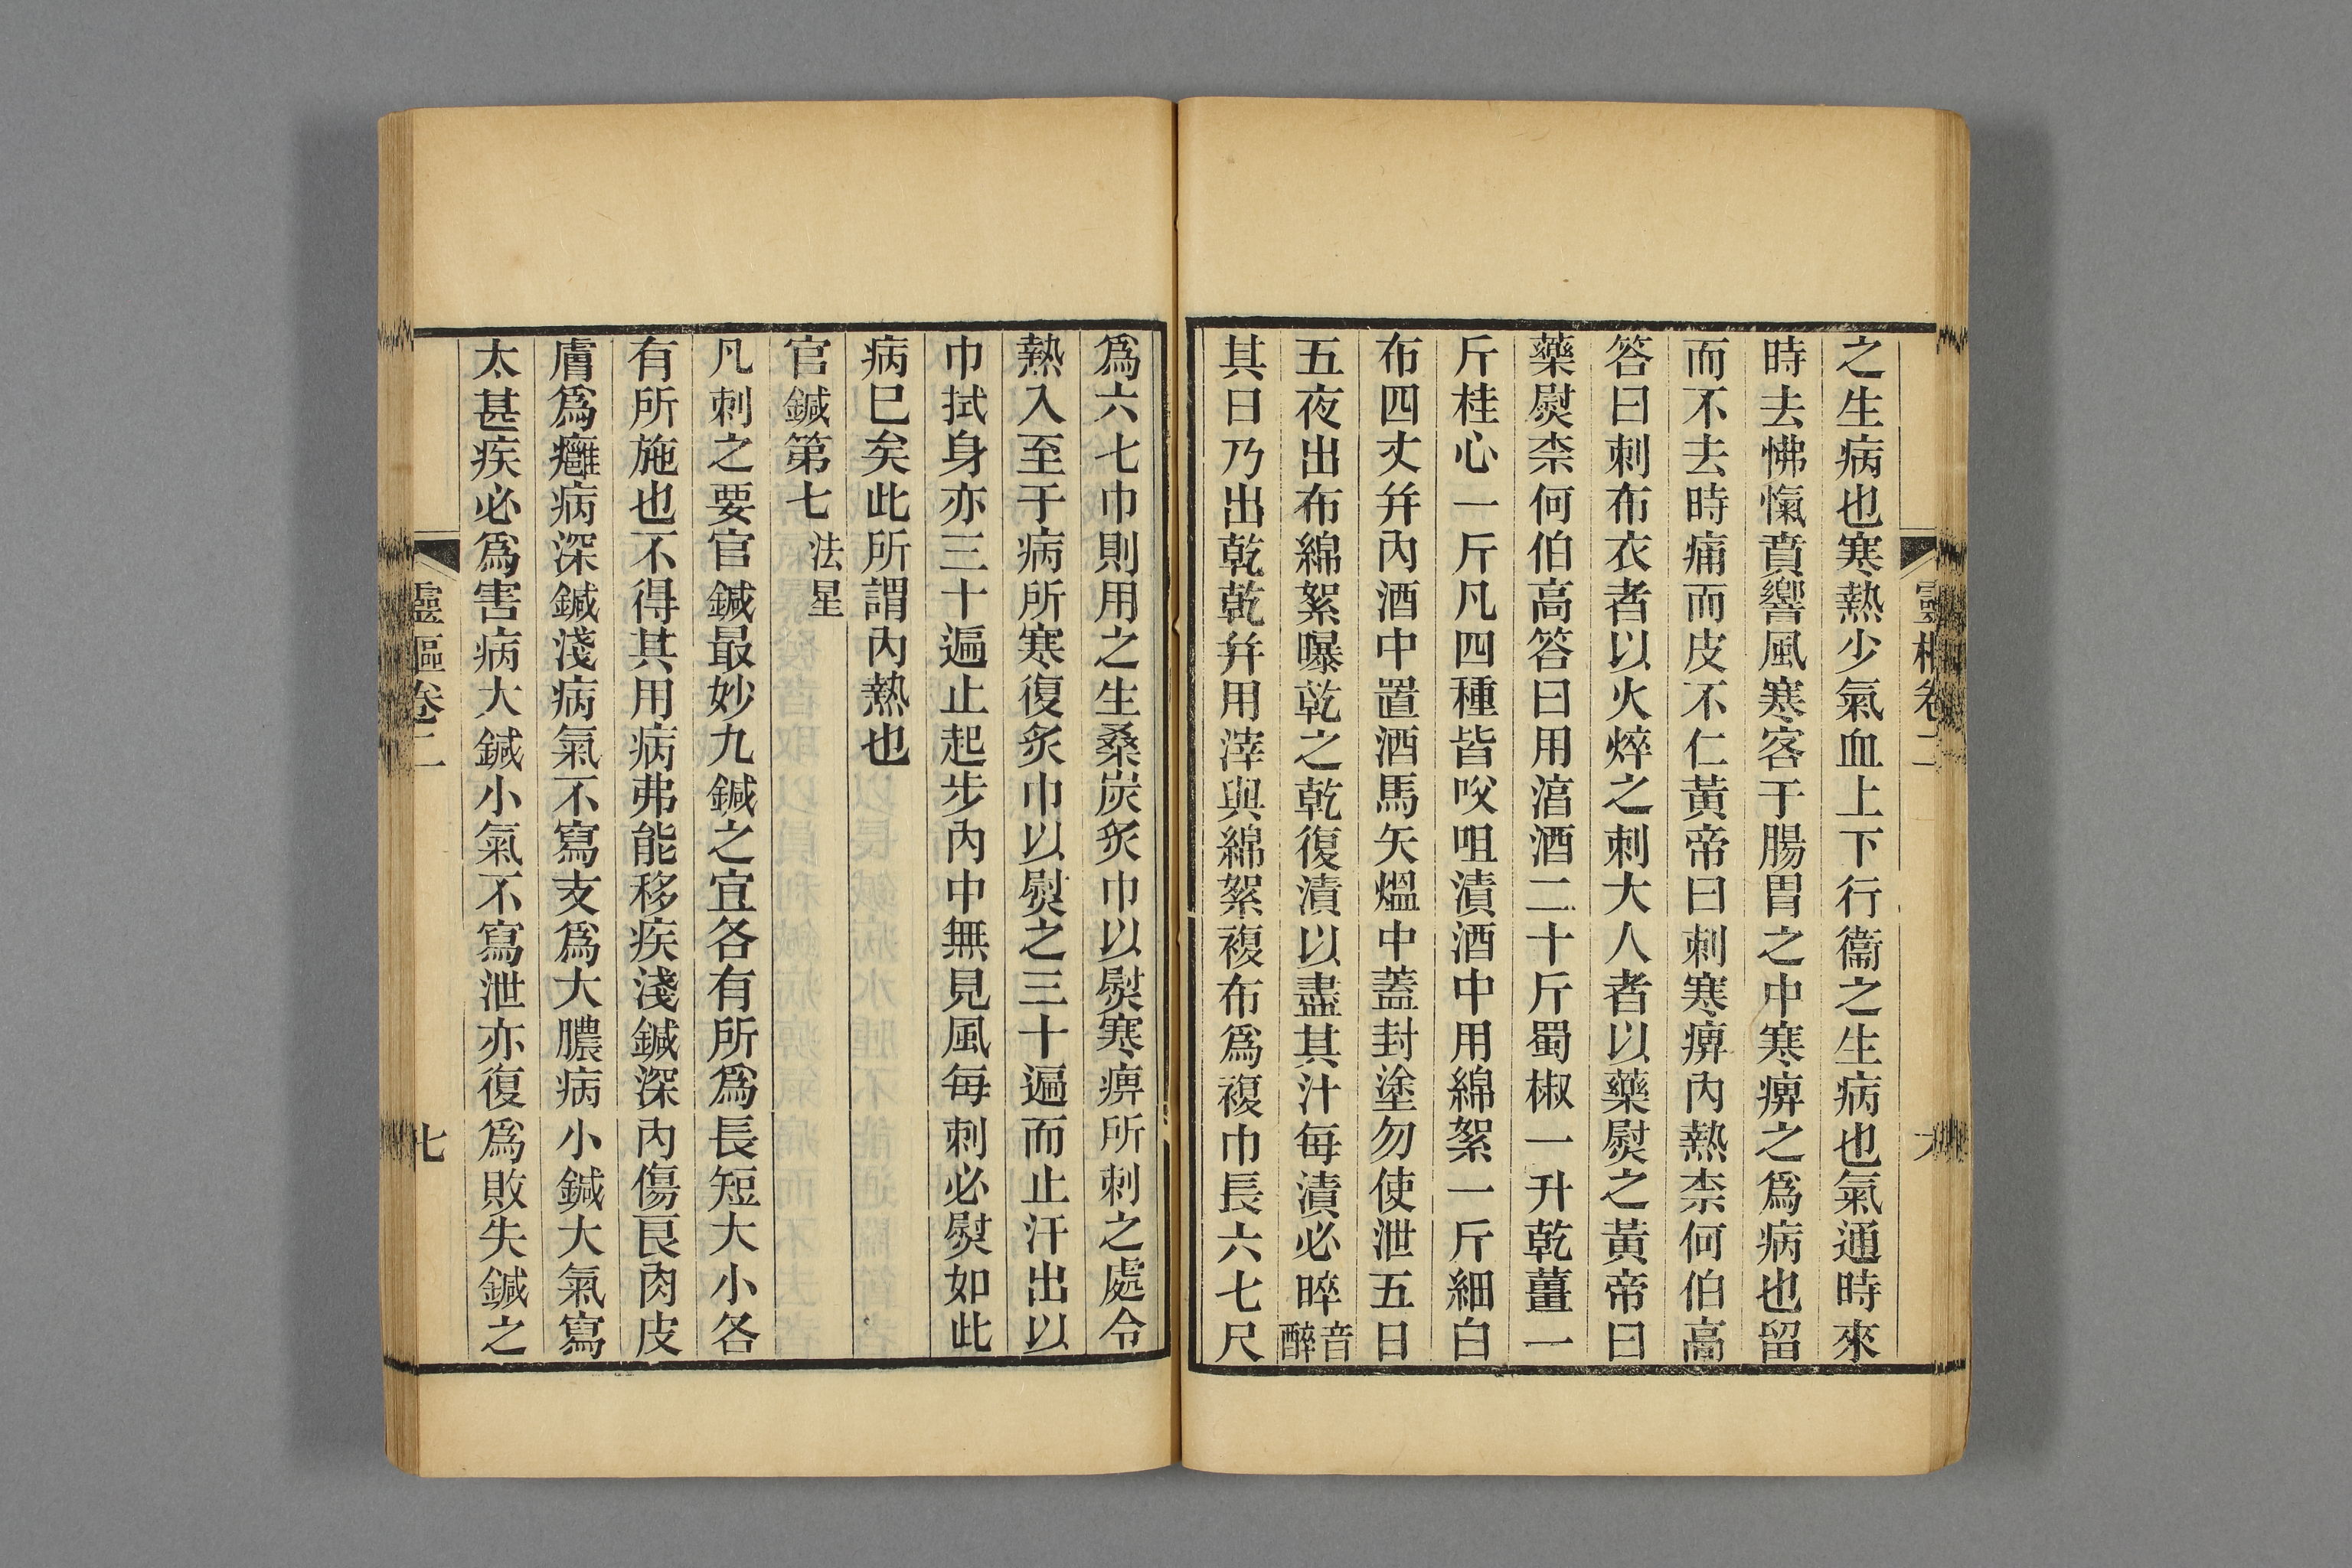 靈樞卷二
六
之生病也寒熱少氣血上下行衞之生病也氣通時來
時去怫愾賁響風寒客于腸胃之中寒痹之爲病也留
而不去時痛而皮不仁黃帝曰刺寒痹內熱柰何伯高
答曰刺布衣者以火焠之刺大人者以藥熨之黃帝曰
藥熨柰何伯高答曰用湻酒二十斤蜀椒一升乾薑一
斤桂心一斤凡四種皆㕮咀漬酒中用綿絮一斤細白
布四丈幷內酒中置酒馬矢熅中蓋封塗勿使泄五日
五夜出布綿絮曝乾之乾復漬以盡其汁每漬必晬音醉
其日乃出乾乾幷用滓與綿絮複布爲複巾長六七尺
爲六七巾則用之生桑炭炙巾以熨寒痹所刺之處令
熱入至于病所寒復炙巾以熨之三十遍而止汗出以
巾拭身亦三十遍止起步內中無見風每刺必熨如此
病已矣此所謂內熱也
官鍼第七法星
凡刺之要官鍼最妙九鍼之宜各有所爲長短大小各
有所施也不得其用病弗能移疾淺鍼深內傷良肉皮
膚爲癰病深鍼淺病氣不寫支爲大膿病小鍼大氣寫
太甚疾必爲害病大鍼小氣不寫泄亦復爲敗失鍼之
靈樞卷二
七